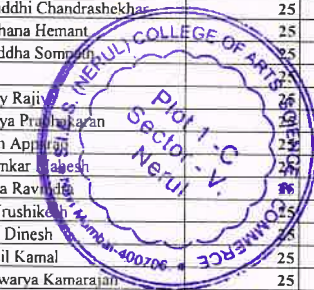 uddhi Chandrashekhar 25
hana Hemant 25
ddha Somnath 25
25
y Rajiv
ya Prabhakaran
n Apparao
mkar Mahesh
a Ravindra
rushikesh 25
Dinesh 25
il Kamal 25
warya Kamarajan 25
S.I.E.S. (NERUL) COLLEGE OF ARTS SCIENCE COMMERCE
Plot 1-C
Sector-V.
Nerul
Navi Mumbai-400706.